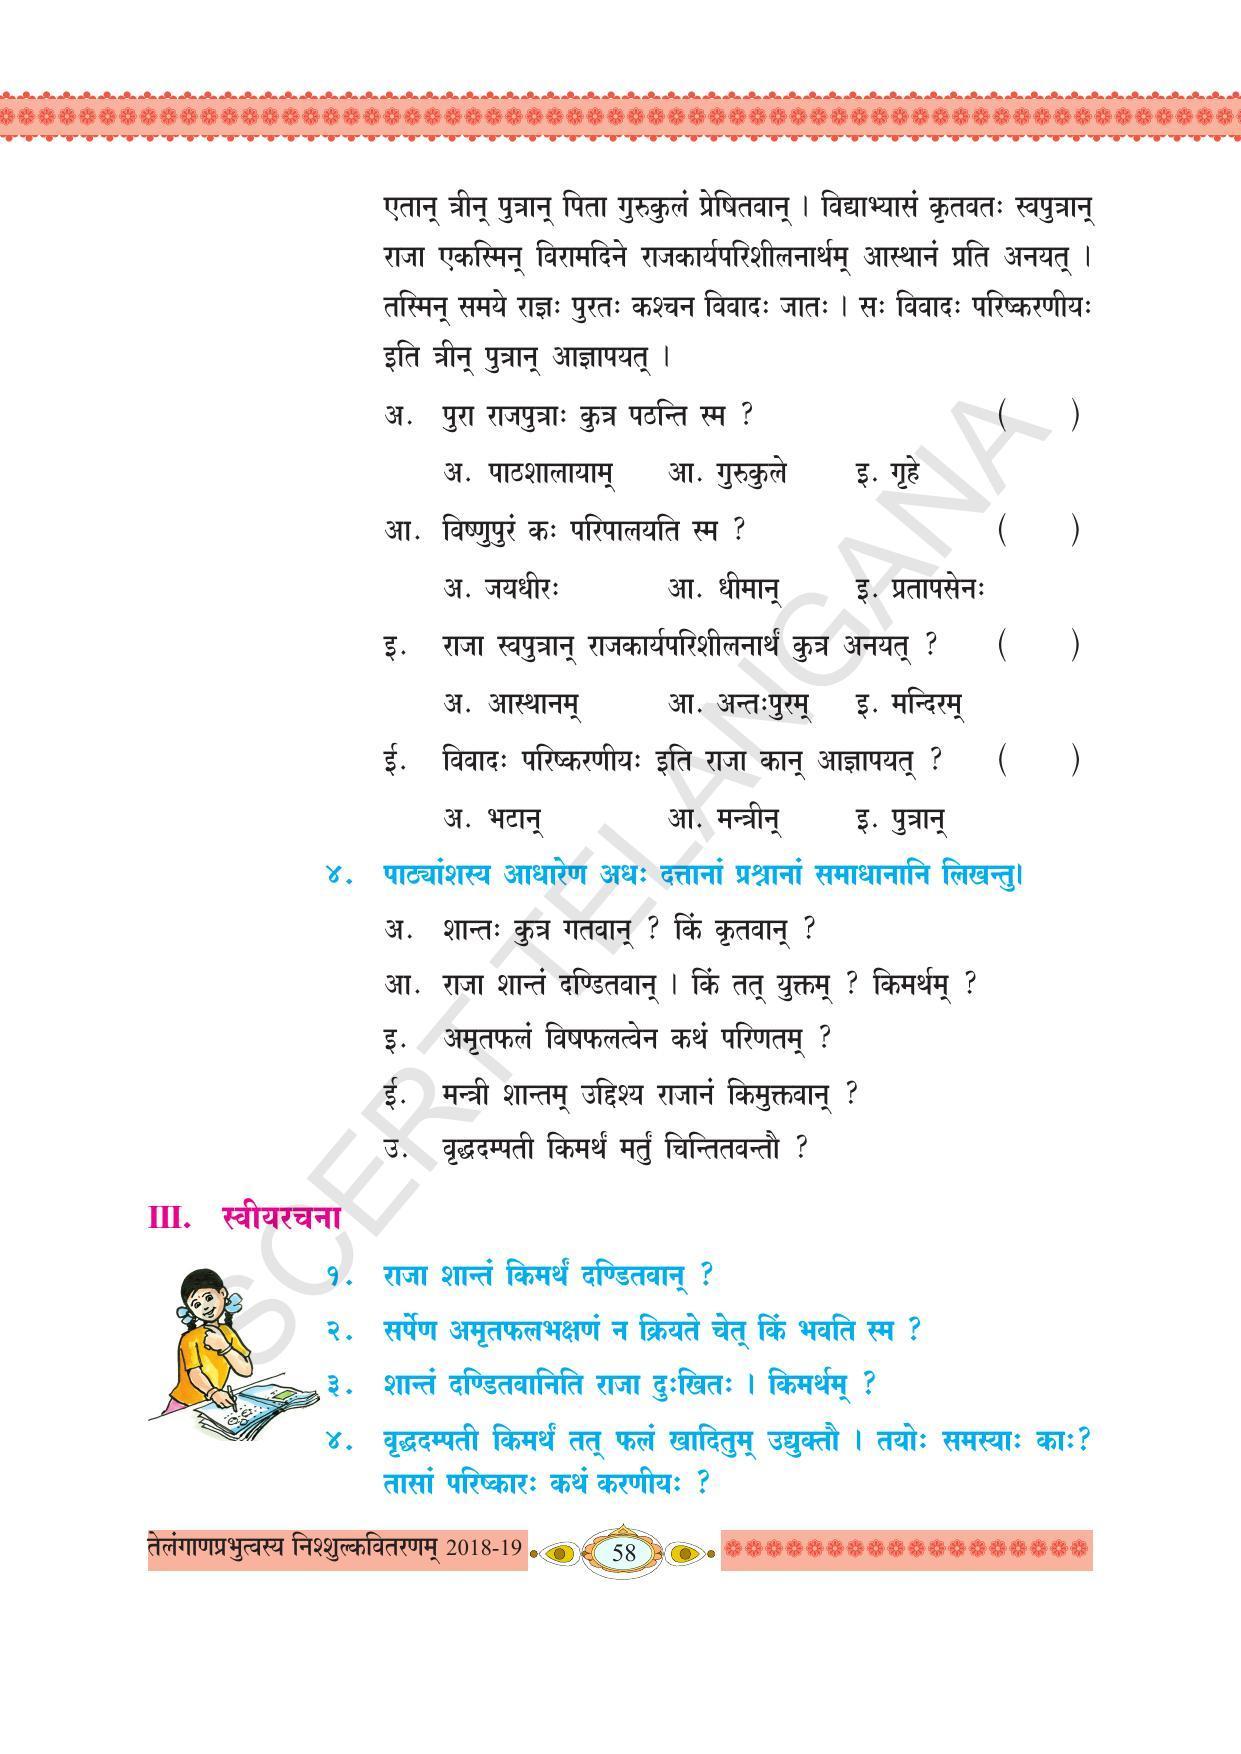 एतान् त्रीन् पुत्रान् पिता गुरुकुलं प्रेषितवान् । विद्याभ्यासं कृतवतः स्वपुत्रान्
राजा एकस्मिन् विरामदिने राजकार्यपरिशीलनार्थम् आस्थानं प्रति अनयत् ।
तस्मिन् समये राज्ञः पुरतः कश्चन विवादः जातः । सः विवादः परिष्करणीयः
इति त्रीन् पुत्रान् आज्ञापयत् ।
अ. पुरा राजपुत्राः कुत्र पठन्ति स्म ? ( )
अ. पाठशालायाम् आ. गुरुकुले इ. गृहे
आ. विष्णुपुरं कः परिपालयति स्म ? ( )
अ. जयधीरः आ. धीमान् इ. प्रतापसेनः
इ. राजा स्वपुत्रान् राजकार्यपरिशीलनार्थं कुत्र अनयत् ? ( )
अ. आस्थानम् आ. अन्तःपुरम् इ. मन्दिरम्
ई. विवादः परिष्करणीयः इति राजा कान् आज्ञापयत् ? ( )
अ. भटान् आ. मन्त्रीन् इ. पुत्रान्
४. पाठ्यांशस्य आधारेण अधः दत्तानां प्रश्नानां समाधानानि लिखन्तु।
अ. शान्तः कुत्र गतवान् ? किं कृतवान् ?
आ. राजा शान्तं दण्डितवान् । किं तत् युक्तम् ? किमर्थम् ?
इ. अमृतफलं विषफलत्वेन कथं परिणतम् ?
ई. मन्त्री शान्तम् उद्दिश्य राजानं किमुक्तवान् ?
उ. वृद्धदम्पती किमर्थं मर्तुं चिन्तितवन्तौ ?
III. स्वीयरचना
१. राजा शान्तं किमर्थं दण्डितवान् ?
२. सर्पेण अमृतफलभक्षणं न क्रियते चेत् किं भवति स्म ?
३. शान्तं दण्डितवानिति राजा दुःखितः । किमर्थम् ?
४. वृद्धदम्पती किमर्थं तत् फलं खादितुम् उद्युक्तौ । तयोः समस्याः काः?
तासां परिष्कारः कथं करणीयः ?
तेलंगाणप्रभुत्वस्य निश्शुल्कवितरणम् 2018-19
58
SCERT TELANGANA